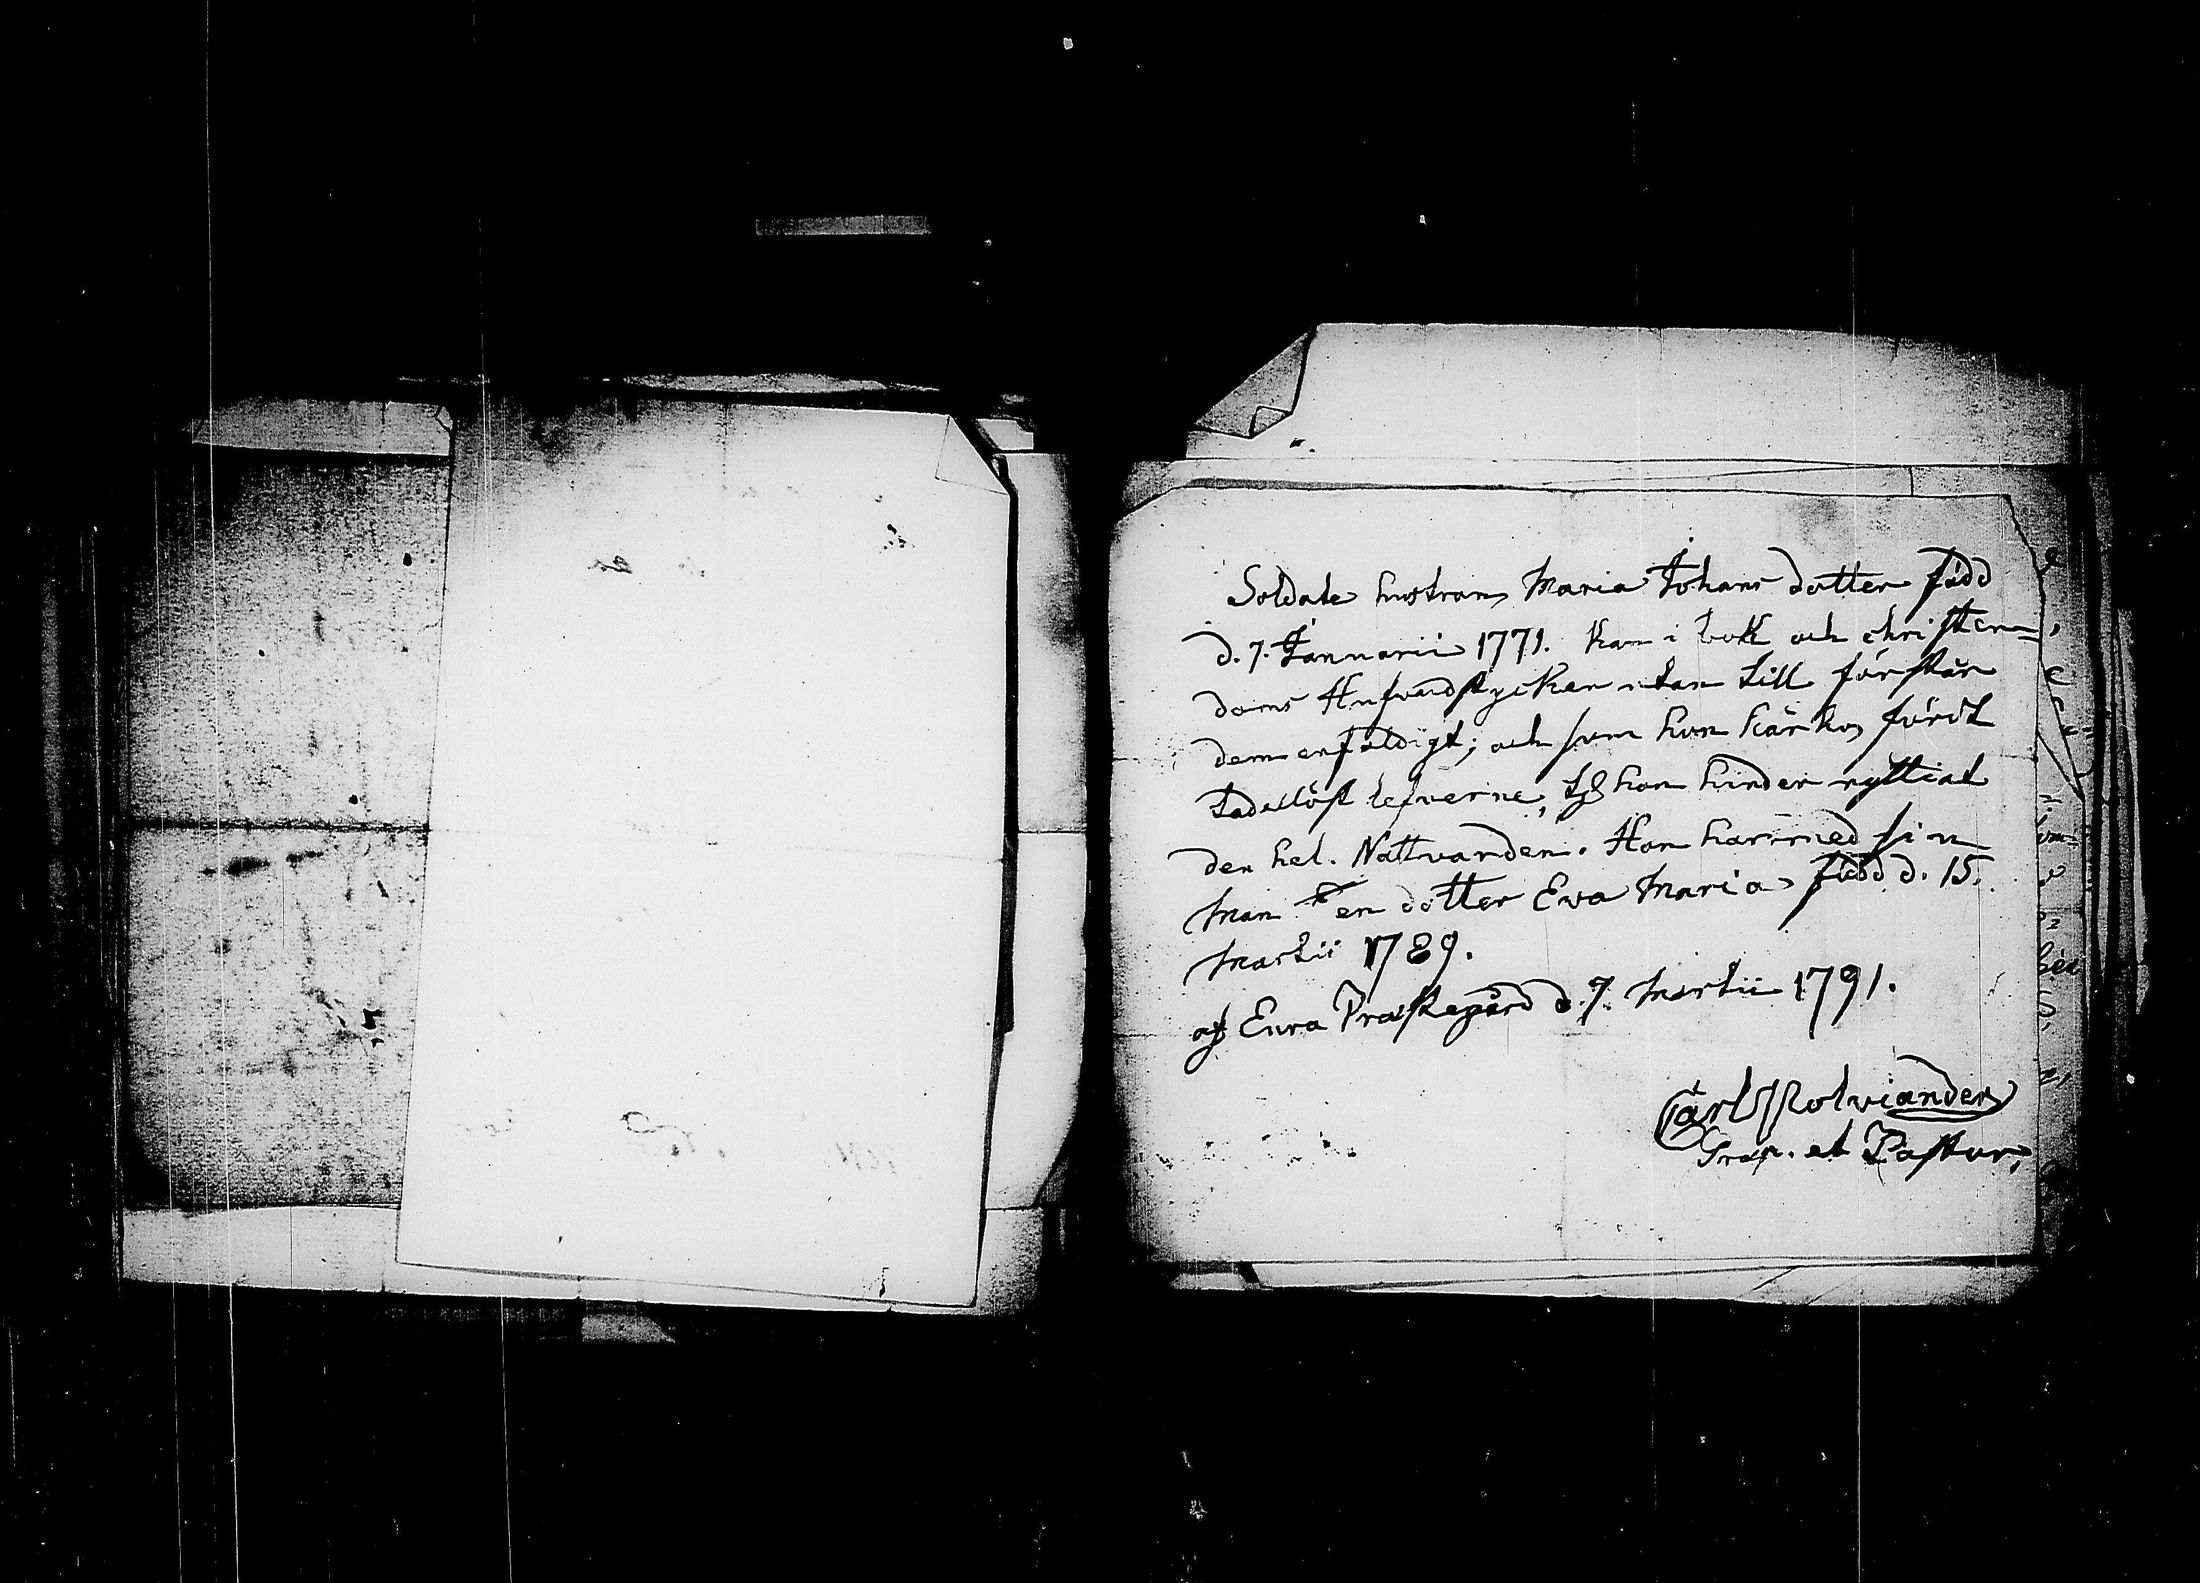 Soldate hustrun Maria Johans dotter född
d. 7. Januarii 1771. kan i bok och christen-
doms Hufvudstycken utan till förstår
dem enfaldigt; och som hon här fördt
Tadellöst lefverne, hon hinder nyttiat
den hel. Nattvarden. Hon har med sin
Man en dotter Eva Maria född d. 15.
Martii 1789.
af Eura Prästegård d. 7. Martii 1791.
Carl Polviander
Præp. et Pastor.